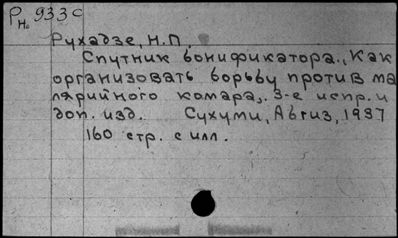 Рн. 933с
Рухадзе, Н.П.
Спутник бонификатора., Как
организовать борьбу против ма
лярийного комара,. 3-е испр. и
доп. изд. Сухуми, Абгиз, 1937
160 стр. с илл.